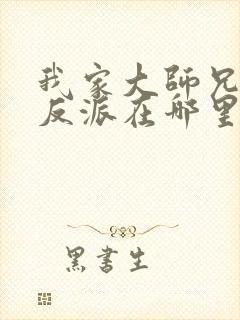 我家大師兄
反派在哪里
黑書生